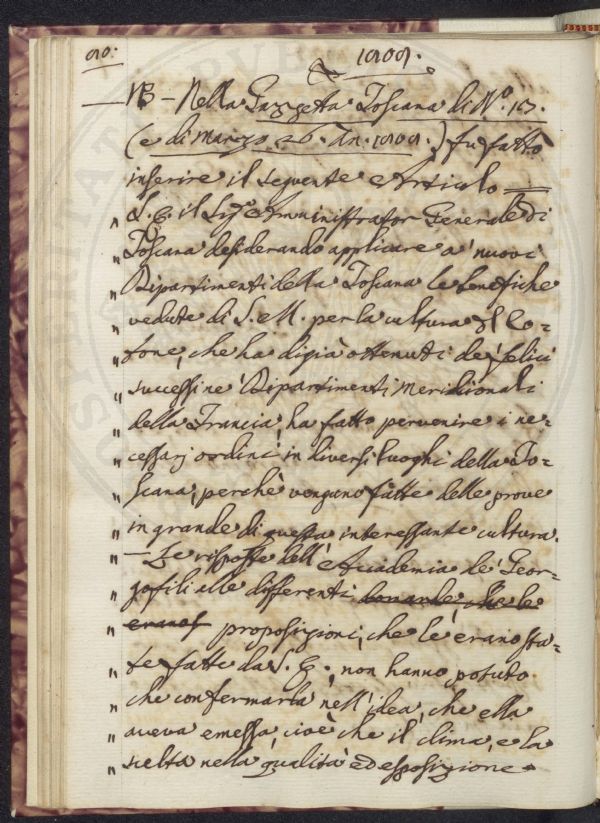 90:
1808.
NB - Nella Gazzetta Toscana di N.º 13.
(e di Marzo 26. An. 1808.) fu fatto
inserire il seguente Articolo =
„ S. E. il Sig.e Amministrator Generale di
„ Toscana desiderando applicare a' nuovi
„ Dipartimenti della Toscana le benefiche
„ vedute di S. M. per la cultura del Co=
„ tone, che ha digià ottenuti de' felici
„ successi ne' Dipartimenti Meridionali
„ della Francia, ha fatto pervenire i ne=
„ cessarj ordini in diversi luoghi della To=
„ scana, perchè vengano fatte delle prove
„ in grande di questa interessante cultura.
„ — Le risposte dell'Accademia de' Geor=
„ gofili alle differenti che le
„ erano proposizioni, che le erano sta=
„ te fatte da S. E., non hanno potuto
„ che confermarla nell'idea, che ella
„ aveva emessa, cioè che il clima, e la
„ scelta nella qualità ed esposizione